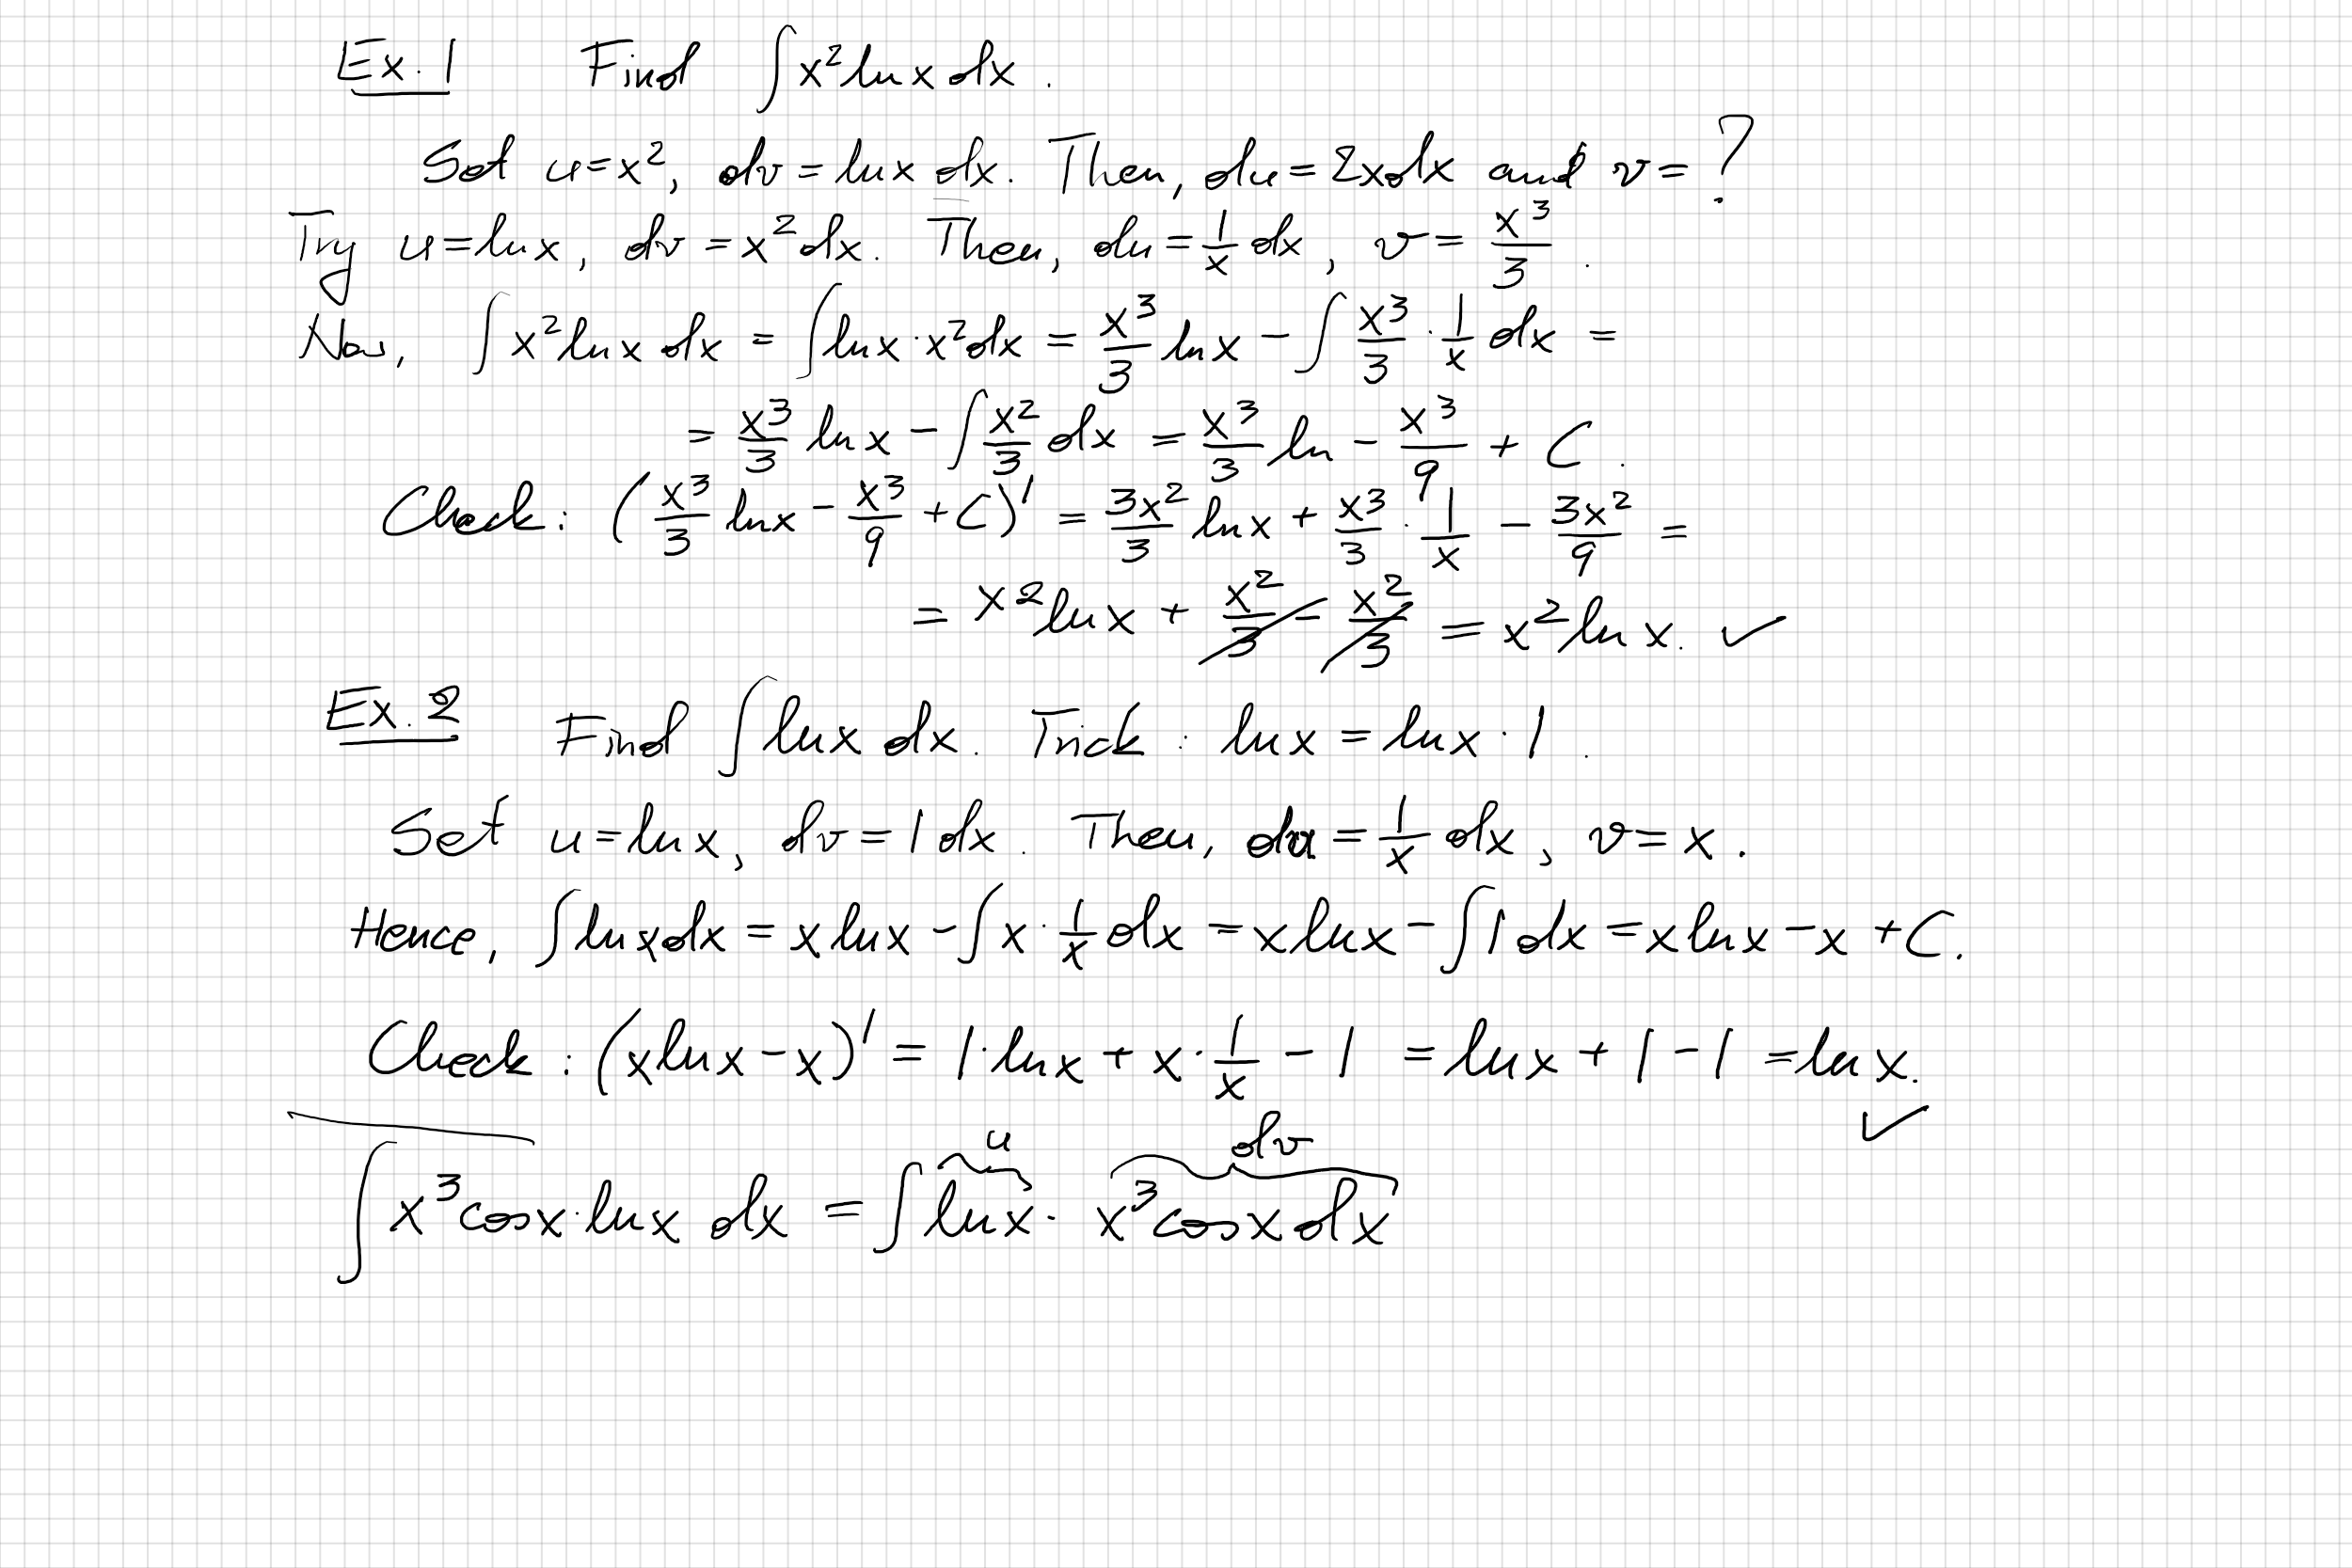 Ex. 1 Find ∫x² ln x dx.
Set u = x², dv = ln x dx. Then, du = 2x dx and v = ?
Try u = ln x, dv = x² dx. Then, du = 1/x dx, v = x³/3.
Now, ∫x² ln x dx = ∫ln x · x² dx = x³/3 ln x − ∫ x³/3 · 1/x dx =
= x³/3 ln x − ∫ x²/3 dx = x³/3 ln − x³/9 + C.
Check: (x³/3 ln x − x³/9 + C)' = 3x²/3 ln x + x³/3 · 1/x − 3x²/9 =
= x² ln x + x²/3 − x²/3 = x² ln x. ✓
Ex. 2 Find ∫ln x dx. Trick: ln x = ln x · 1.
Set u = ln x, dv = 1 dx. Then, du = 1/x dx, v = x.
Hence, ∫ln x dx = x ln x − ∫x · 1/x dx = x ln x − ∫1 dx = x ln x − x + C.
Check: (x ln x − x)' = 1 · ln x + x · 1/x − 1 = ln x + 1 − 1 = ln x. ✓
u dv
∫x³ cos x · ln x dx = ∫ln x · x³ cos x dx